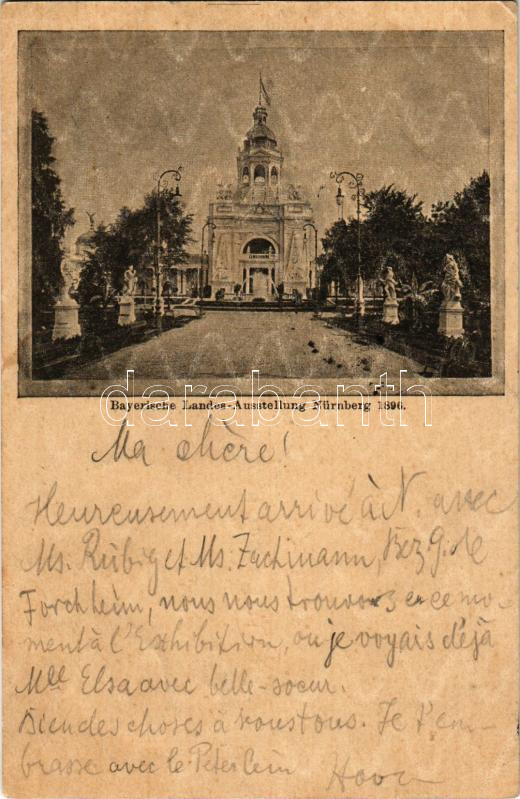 darabanth
Bayerische Landes-Ausstellung Nürnberg 1896.
Ma chère!
Heureusement arrivé à N. avec
Ms. Rübig et Ms. Zachmann, Bez G. de
Forchheim, nous nous trouvons en ce mo-
ment à l'Exhibition, où je voyais déjà
Mlle Elsa avec belle-soeur.
Bien des choses à vous tous. Je t'em-
brasse avec le Peterlein